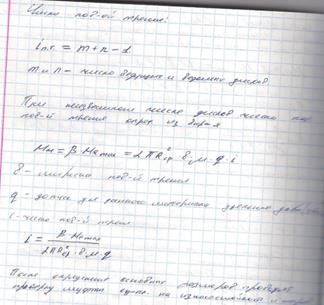 Число пов-ей трения:
i п.т. = m + n - 1
m и n - число ведущих и ведомых дисков.
При неизвестном числе дисков число пов
пов-ей трения опред из
Mм = β · Memax = 2πR²ср · δ · μ · q · i
δ - ширина пов-ей трения
q - допуск для данного материала удельное дав
i - число пов-ей трен
i = β · Memax / 2πR²ср · δ · μ · q
После определения основных размеров проводят
проверку муфты сцепл. на износостойкость и